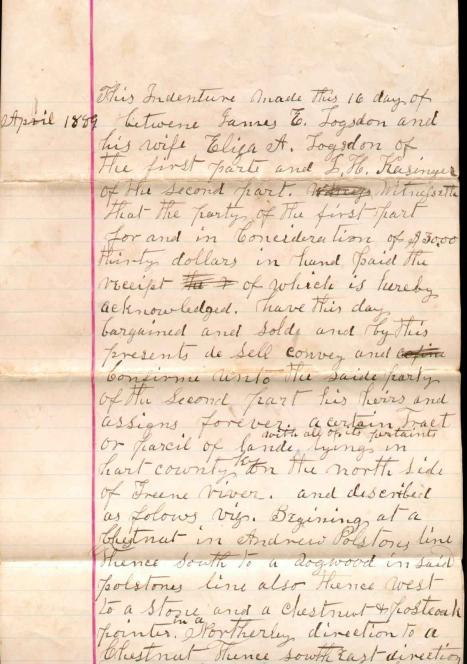 This Indenture made this 16 day of
April 1889 betwene James E. Logsdon and
his wife Eliza A. Logsdon of
the first parte and L. H. Kasinger
of the second part. Witnessette
that the party of the first part
for and in Concideration of $30.00
thirty dollars in hand paid the
receipt of which is hereby
acknowledged. have this day
bargained and solde and by this
presents de sell convey and
Confirme unto the saide party
of the second part his heirs and
assigns forever. a certain Tract
with all of its pertaints
or parcil of lande, lying in
hart county Ky on the north side
of Greene river. and described
as folows viz. Begining at a
Chestnut in Andrew Polstons line
thence south to a dogwood in said
polstons line also thence west
to a stone and a chestnut & postoak
pointer. in a Northerley direction to a
Chestnut thence south East direction